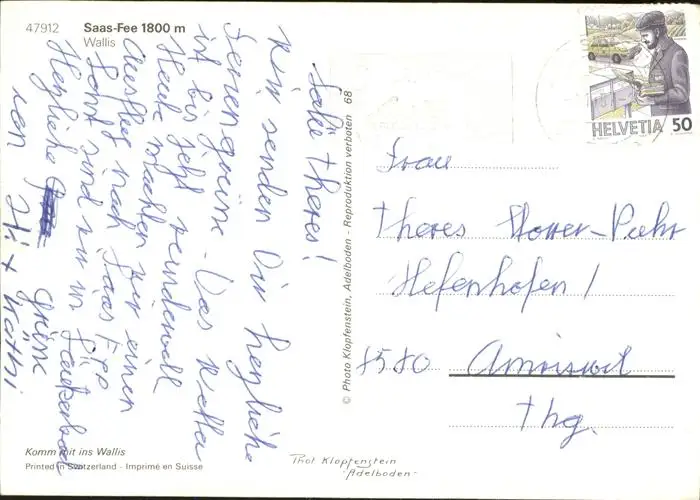 47912 Saas-Fee 1800 m
Wallis
Salü Theres!
Wir senden Dir herzliche
Feriengrüsse. Das Wetter
ist bis jetzt wundervoll
Heute machten wir einen
Ausflug nach Saas Fee
Sonst sind wir in Leukerbad
Herzliche Grüsse
von
+ Kathi
Komm mit ins Wallis
Printed in Switzerland - Imprimé en Suisse
© Photo Klopfenstein, Adelboden - Reproduktion verboten 68
Phot Klopfenstein
-Adelboden-
HELVETIA 50
Frau
Theres
Hefenhofen /
8580 Amriswil
Thg.